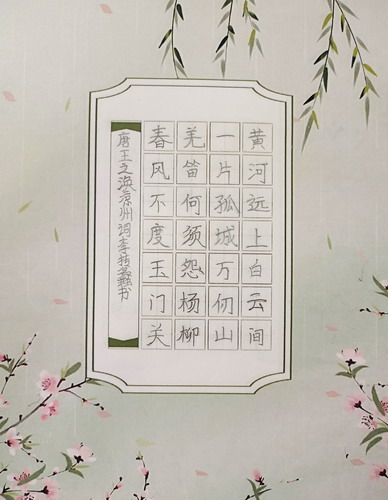 黄河远上白云间
一片孤城万仞山
羌笛何须怨杨柳
春风不度玉门关
唐王之涣凉州词李书